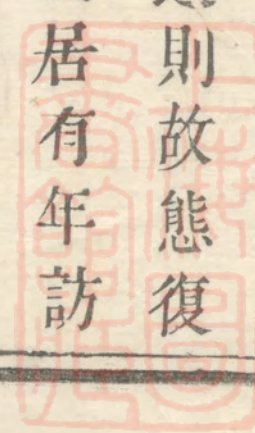 則故態復
居有年訪